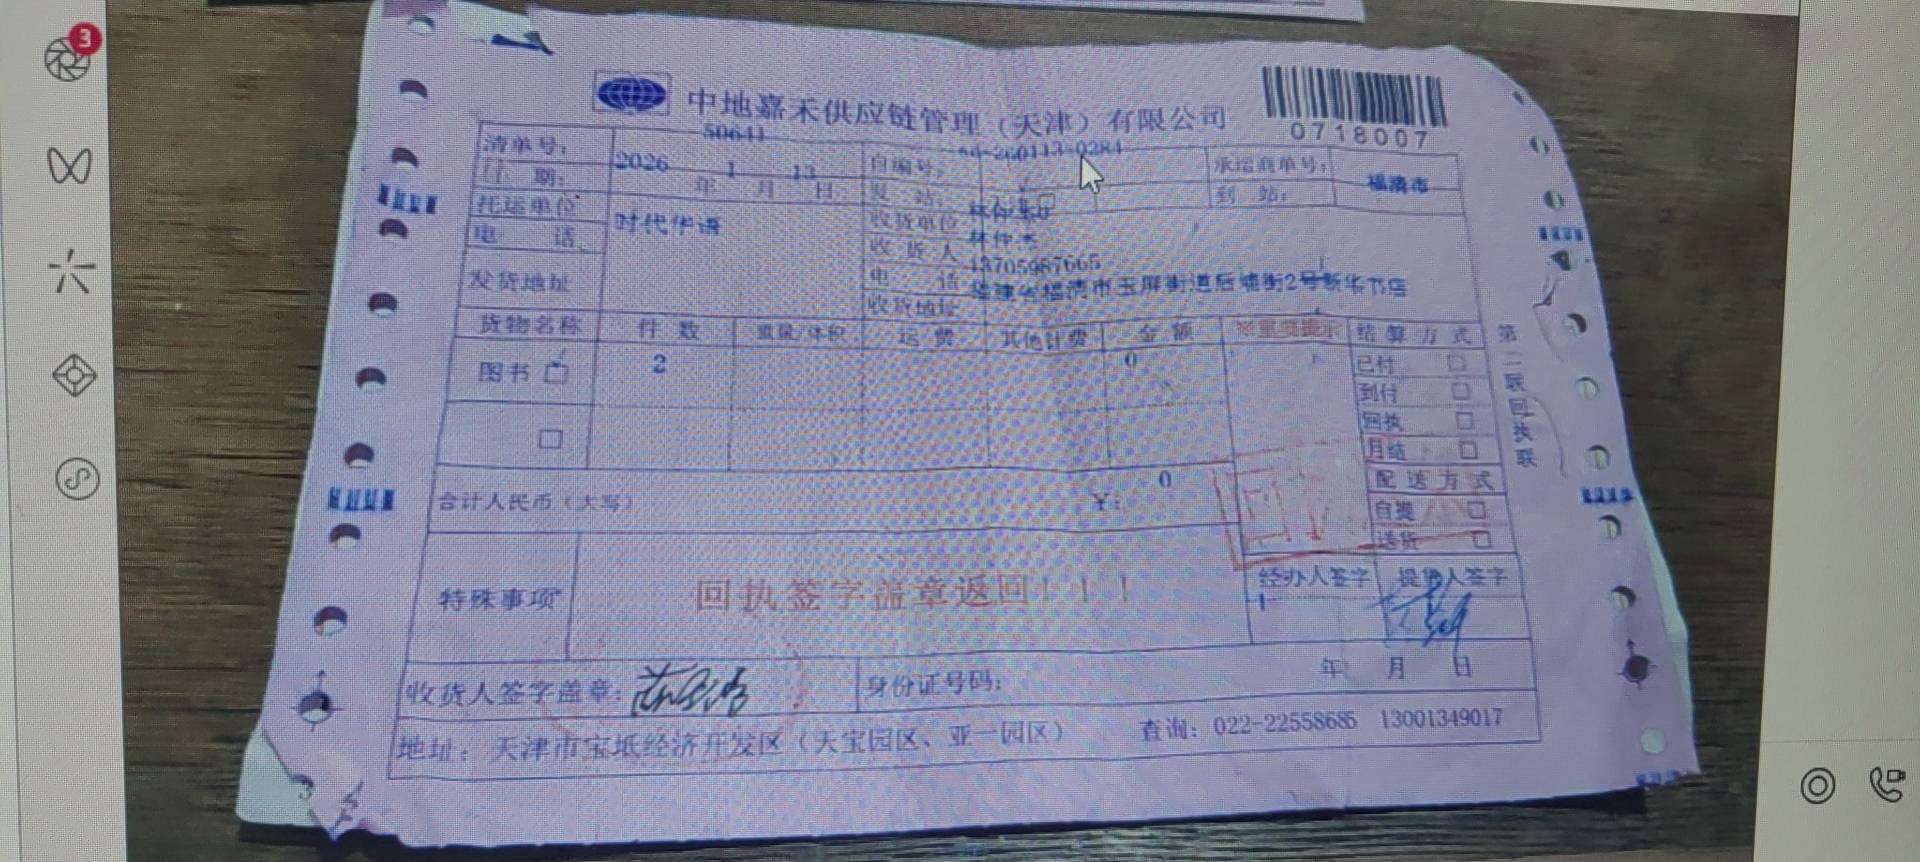 3
中地嘉禾供应链管理（天津）有限公司
0718007
清单号： 50641 自编号： 承运商单号：
日 期： 2026 年 1 月 13 日 发 站： 到 站： 福清市
托运单位 时代华语 收货单位
电 话 收 货 人
发货地址 电 话
收货地址 福建省福清市玉屏街道后埔街2号新华书店
货物名称 件 数 重量/体积 运 费 其他计费 金 额 结 算 方 式
图书 2 0 已付
到付
回执
月结
第二联回执联
合计人民币（大写） ￥： 0 配 送 方 式
自提
送货
特殊事项 回执签字盖章返回！！！ 经办人签字 提货人签字
收货人签字盖章： 身份证号码： 年 月 日
地址： 天津市宝坻经济开发区（天宝园区、亚一园区） 查询：022-22558685 13001349017